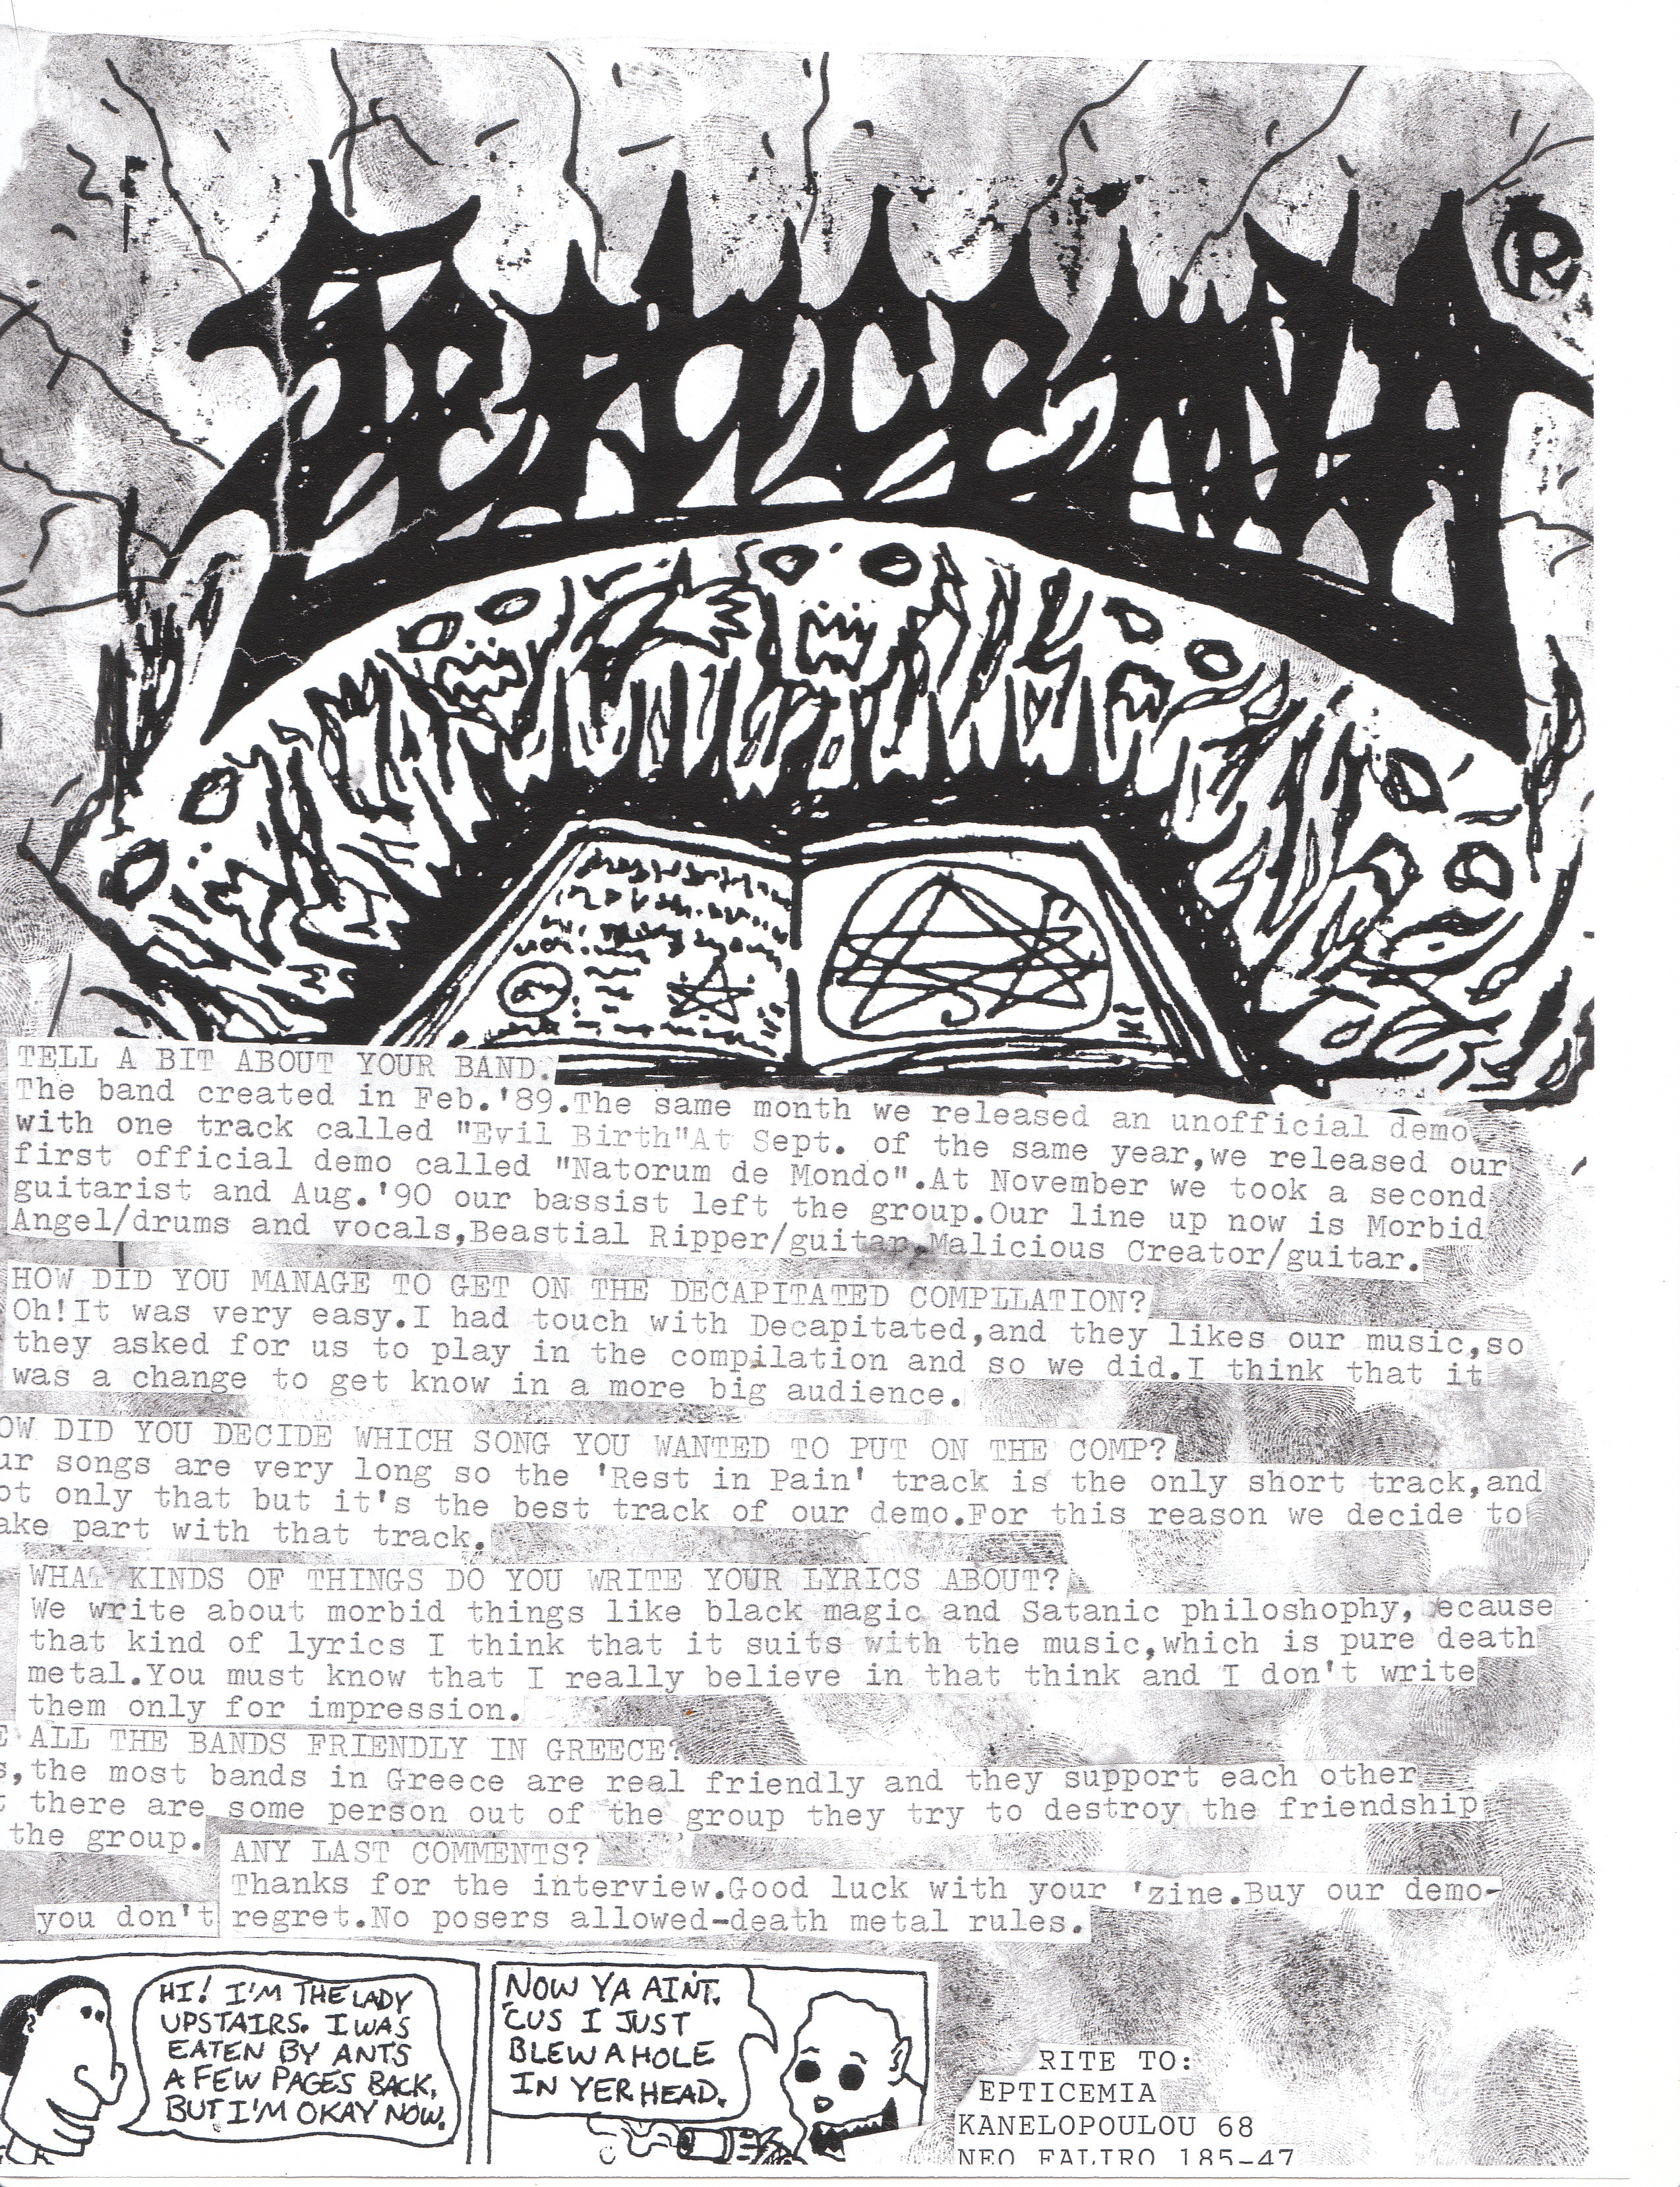 SEPTICEMIA
R
TELL A BIT ABOUT YOUR BAND.
The band created in Feb.'89.The same month we released an unofficial demo
with one track called "Evil Birth"At Sept. of the same year,we released our
first official demo called "Natorum de Mondo".At November we took a second
guitarist and Aug.'90 our bassist left the group.Our line up now is Morbid
Angel/drums and vocals,Beastial Ripper/guitar,Malicious Creator/guitar.
HOW DID YOU MANAGE TO GET ON THE DECAPITATED COMPILATION?
Oh!It was very easy.I had touch with Decapitated,and they likes our music,so
they asked for us to play in the compilation and so we did.I think that it
was a change to get know in a more big audience.
OW DID YOU DECIDE WHICH SONG YOU WANTED TO PUT ON THE COMP?
ur songs are very long so the 'Rest in Pain' track is the only short track,and
ot only that but it's the best track of our demo.For this reason we decide to
ake part with that track.
WHAT KINDS OF THINGS DO YOU WRITE YOUR LYRICS ABOUT?
We write about morbid things like black magic and Satanic philoshophy, ecause
that kind of lyrics I think that it suits with the music,which is pure death
metal.You must know that I really believe in that think and I don't write
them only for impression.
E ALL THE BANDS FRIENDLY IN GREECE?
s,the most bands in Greece are real friendly and they support each other
t there are some person out of the group they try to destroy the friendship
the group.
ANY LAST COMMENTS?
Thanks for the interview.Good luck with your 'zine.Buy our demo-
you don't regret.No posers allowed-death metal rules.
HI! I'M THE LADY
UPSTAIRS. I WAS
EATEN BY ANTS
A FEW PAGES BACK,
BUT I'M OKAY NOW.
NOW YA AIN'T.
'CUS I JUST
BLEW A HOLE
IN YER HEAD.
RITE TO:
EPTICEMIA
KANELOPOULOU 68
NEO FALIRO 185-47